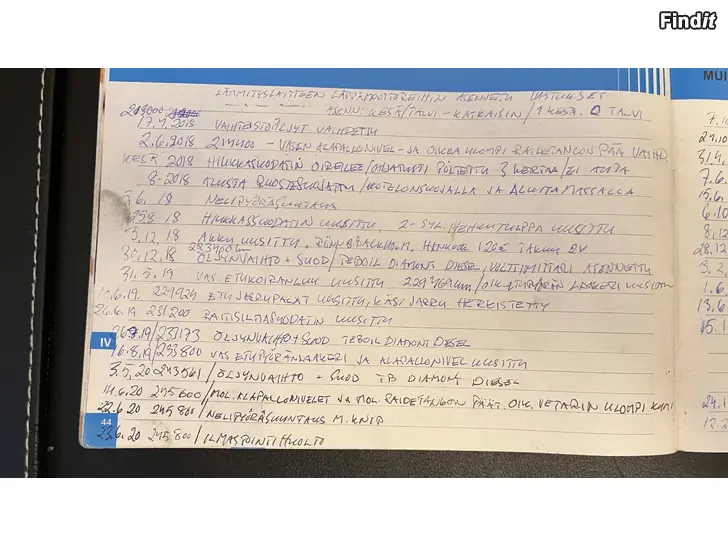 Findit
MUI
LÄMMITYSLAITTEEN LÄPPÄMOOTTOREIHIN ASENNETTU VASTUKSET
ASENN. KESÄ/TALVI-KATKAISIN / 1 KESÄ. 0 TALVI
213000
17.4.2018 VAIHTEISTOÖLJYT VAIHDETTU
2.6.2018 214400 - VASEN ALAPALLONIVEL- JA OIKEA ULOMPI RAIDETANGON PÄÄ VAIHD.
KESÄ 2018 HIUKKASUODATIN OIREILEE / OHJATUSTI POLTETTU 3 KERTAA / EI AUTA
8-2018 ALUSTA RUOSTESUOJATAN / KOTELONSUOJALLA JA ALUSTAMASSALLA
6. 18 NELIPYÖRÄSUUNTAUS
18 HIUKKASSUODATIN UUSITTU, 2-SYL. HEHKUTULPPA UUSITTU
3.12.18 AKKU UUSITTU, 120€ TAKUU 2V
30.12.18 ÖLJYNVAIHTO + SUOD / TEBOIL DIAMONT DIESEL, VOLTTIMITTARI ASENNETTU
31.5.19 VAS. ETUKOIRANLUU UUSITTU 229764km / OIK. ETUPYÖRÄN LAAKERI UUSITTU
10.6.19. 229924 ETUJARRUPALAT UUSITTU, KÄSIJARRU HERKISTETTY
26.6.19 231200 RAITISILMASUODATIN UUSITTU
19/233173 ÖLJYNVAIHTO + SUOD TEBOIL DIAMONT DIESEL
16.8.19/233800 VAS ETUPYÖRÄNLAAKERI JA ALAPALLONIVEL UUSITTU
3.5.20 243561 / ÖLJYNVAIHTO + SUOD TB DIAMONT DIESEL
14.6.20 245600 / MOL. ALAPALLONIVELET JA MOL. RAIDETANGON PÄÄT. OIK. VETARIN ULOMPI KUMI
22.6.20 245800 / NELIPYÖRÄSUUNTAUS M. KNIP
23.6.20 245800 / ILMASTOINTIHUOLTO
IV
44
7.10
24.10
3.
7.6.
15.6
6.1
8.12
28.12
3.2.
1.6
13.6
15.1
24.1
12.2